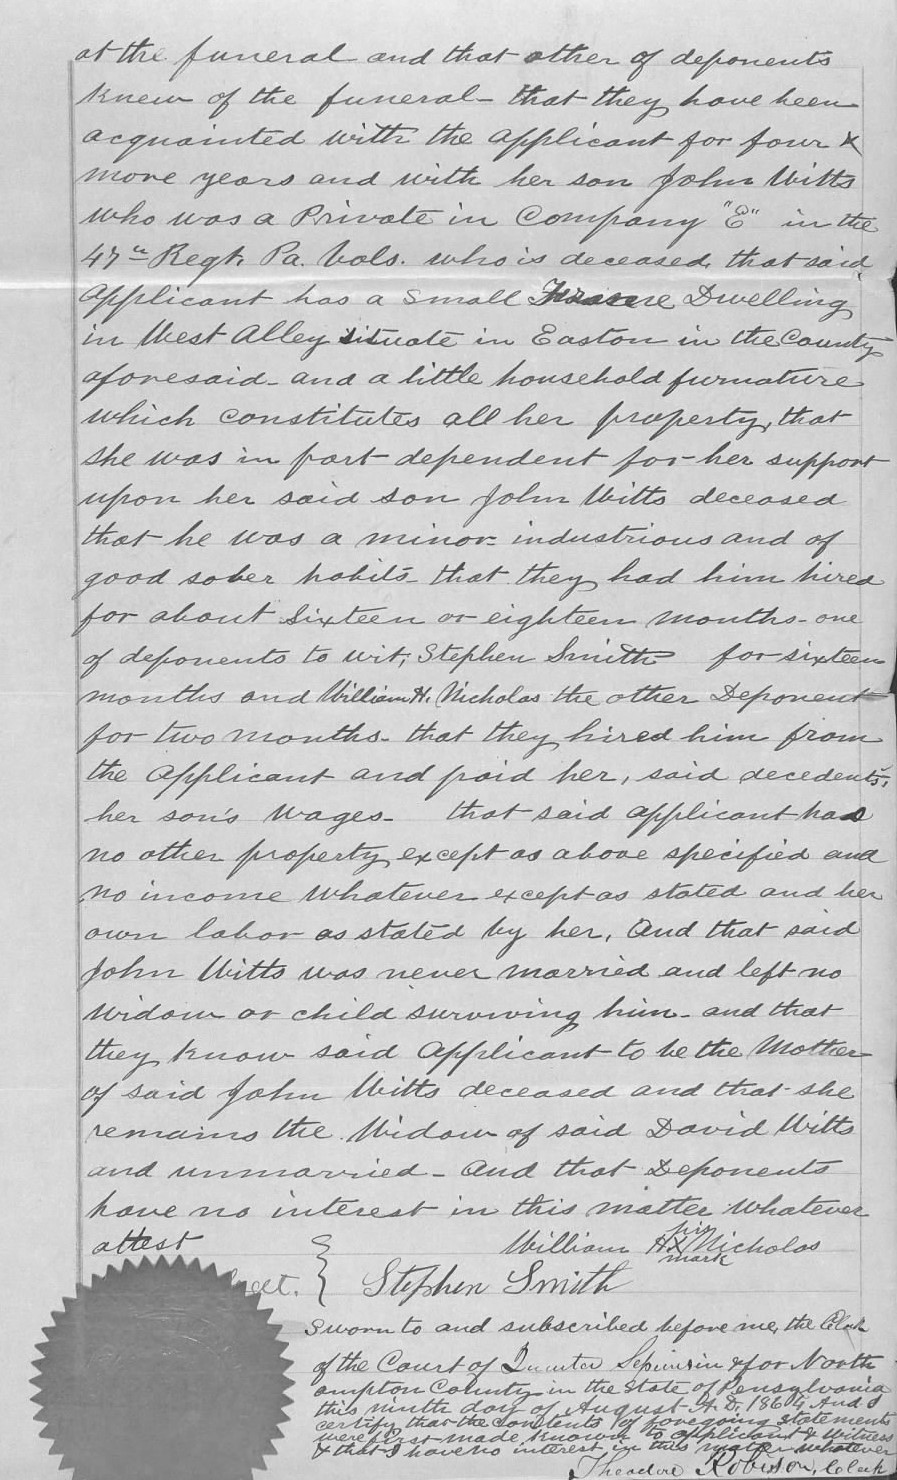 at the funeral and that other of deponents
knew of the funeral - that they have been
acquainted with the applicant for four &
more years and with her son John Witts
who was a Private in Company "E" in the
47th Regt. Pa. Vols. who is deceased, that said
Applicant has a small Frame Dwelling
in West Alley situate in Easton in the County
aforesaid - and a little household furnature
which constitutes all her property, that
she was in part dependent for her support
upon her said son John Witts deceased
that he was a minor - industrious and of
good sober habits - that they had him hired
for about sixteen or eighteen months - one
of deponents to wit, Stephen Smith for sixteen
months and William H. Nicholas the other Deponent
for two months - that they hired him from
the applicant and paid her, said decedents,
her son's wages - that said applicant has
no other property except as above specified and
no income whatever except as stated and her
own labor as stated by her, And that said
John Witts was never married and left no
widow or child surviving him - and that
they know said Applicant to be the Mother
of said John Witts deceased and that she
remains the Widow of said David Witts
and unmarried - And that Deponents
have no interest in this matter whatever
attest
William H. his X mark Nicholas
Stephen Smith
Sworn to and subscribed before me, the Clerk
of the Court of Quarter Sessions in & for North
ampton County in the State of Pensylvania
this ninth day of August A.D. 1864 And I
certify that the contents of foregoing statements
were first made known to applicant & witness
& that I have no interest in this matter whatever
Theodore Robinson, Clerk